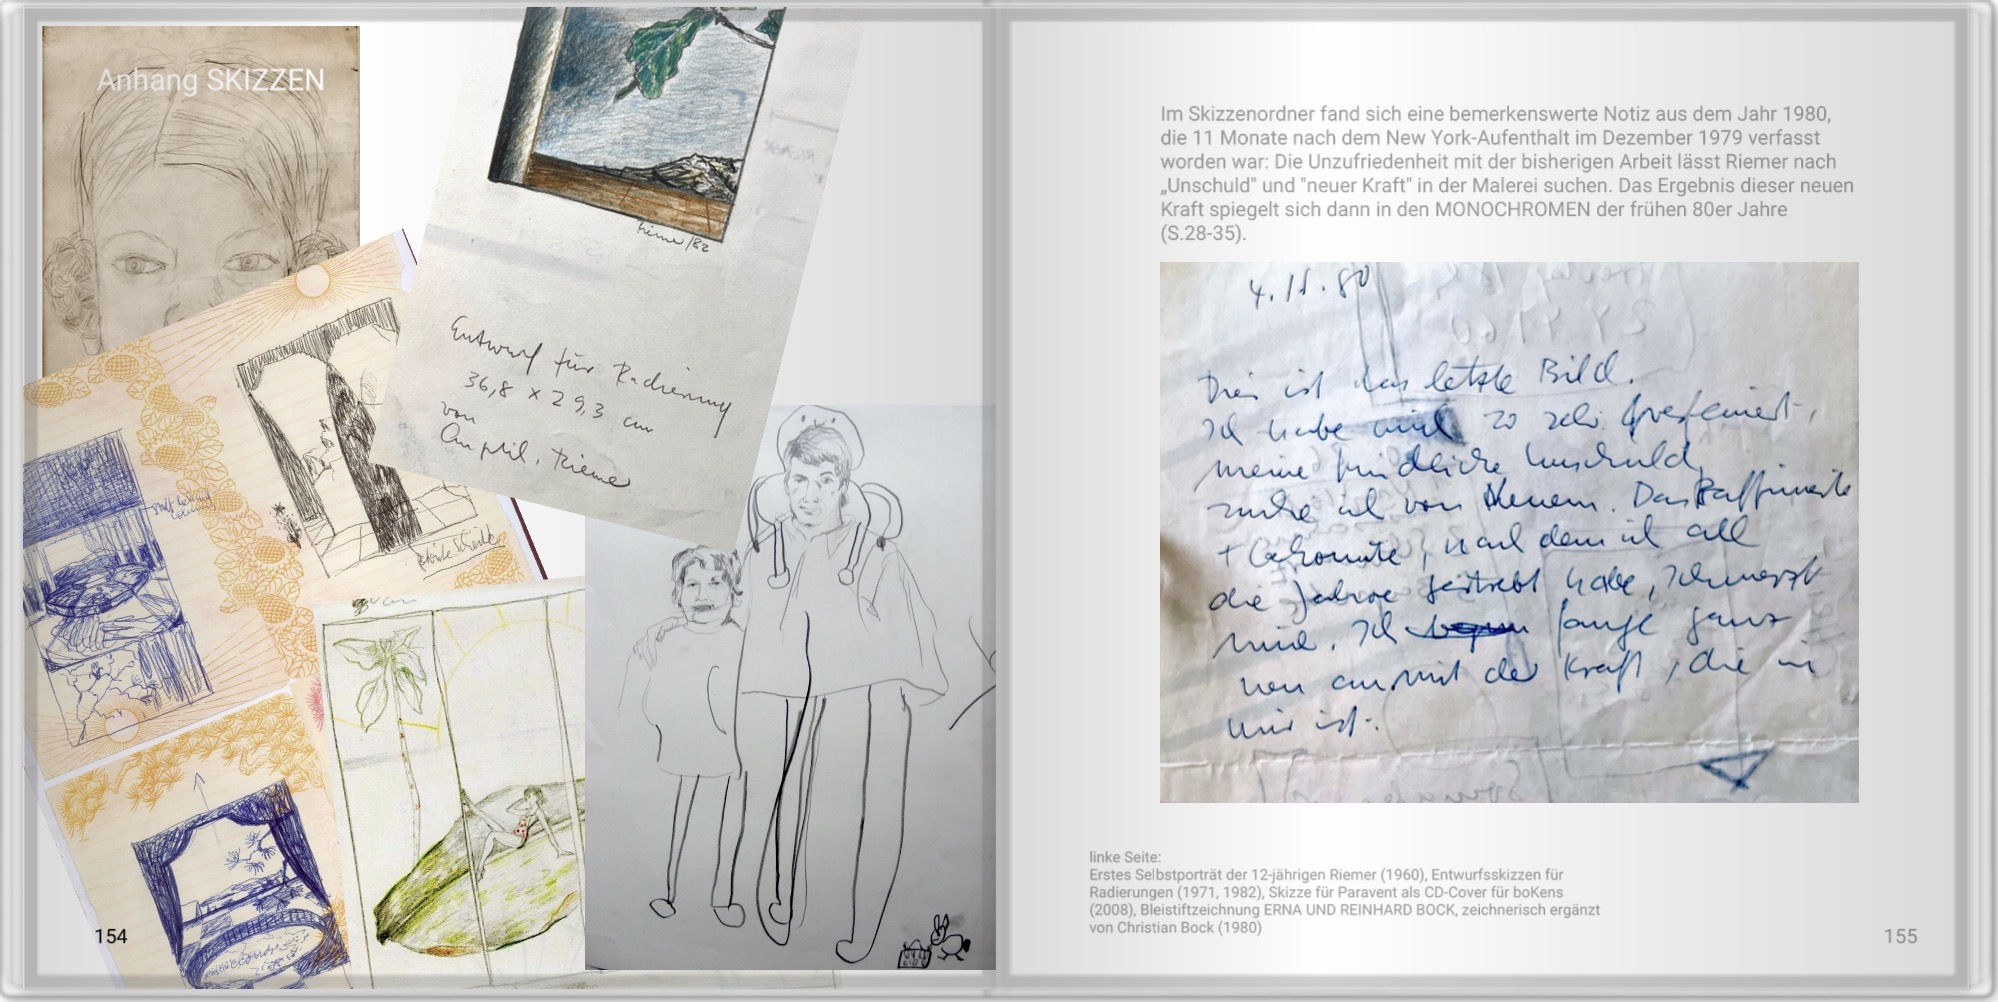 Anhang SKIZZEN
Riemer/82
Entwurf für Radierung
36,8 x 29,3 cm
von
Riemer
154
Im Skizzenordner fand sich eine bemerkenswerte Notiz aus dem Jahr 1980,
die 11 Monate nach dem New York-Aufenthalt im Dezember 1979 verfasst
worden war: Die Unzufriedenheit mit der bisherigen Arbeit lässt Riemer nach
„Unschuld" und "neuer Kraft" in der Malerei suchen. Das Ergebnis dieser neuen
Kraft spiegelt sich dann in den MONOCHROMEN der frühen 80er Jahre
(S.28-35).
4.11.80
Dies ist das letzte Bild.
Ich habe mich so sehr
meine kindliche Unschuld
suche ich von Neuem. Das Raffinierte
+ Gekonnte, nach dem ich all
die Jahre gestrebt habe, schmerzt
mich. Ich fange ganz
neu an mit der Kraft, die in
mir ist.
linke Seite:
Erstes Selbstporträt der 12-jährigen Riemer (1960), Entwurfsskizzen für
Radierungen (1971, 1982), Skizze für Paravent als CD-Cover für boKens
(2008), Bleistiftzeichnung ERNA UND REINHARD BOCK, zeichnerisch ergänzt
von Christian Bock (1980)
155